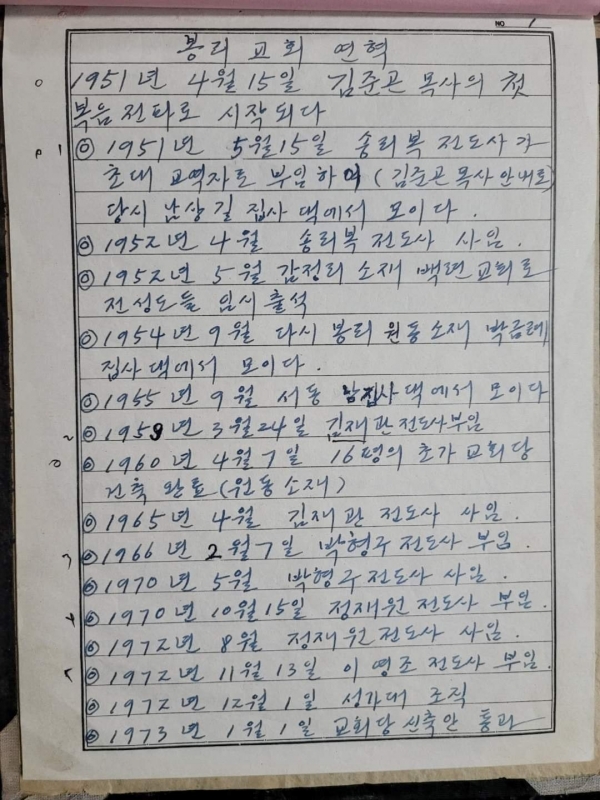 NO 1
봉리 교회 연혁
1951년 4월 15일 김준곤 목사의 첫
복음 전파로 시작되다
1 ◎ 1951년 5월 15일 송리복 전도사가
초대 교역자로 부임하며 (김준곤 목사 안내로)
당시 남상길 집사 댁에서 모이다.
◎ 1952년 4월 송리복 전도사 사임.
◎ 1952년 5월 감정리 소재 백련교회로
전성도들 임시 출석
◎ 1954년 9월 다시 봉리 원동소재 박금례
집사댁에서 모이다.
◎ 1955년 9월 서동 남집사댁에서 모이다
2 ◎ 1959년 3월 24일 김재관전도사부임
◎ 1960년 4월 7일 16평의 초가 교회당
건축 완료 (원동소재)
◎ 1965년 4월 김재관 전도사 사임.
3 ◎ 1966년 2월 7일 박형주 전도사 부임.
◎ 1970년 5월 박형주전도사 사임.
4 ◎ 1970년 10월 15일 정재원 전도사 부임.
◎ 1972년 8월 정재원전도사 사임.
◎ 1972년 11월 13일 이영조 전도사 부임.
◎ 1972년 12월 1일 성가대 조직
◎ 1973년 1월 1일 교회당 신축안 통과